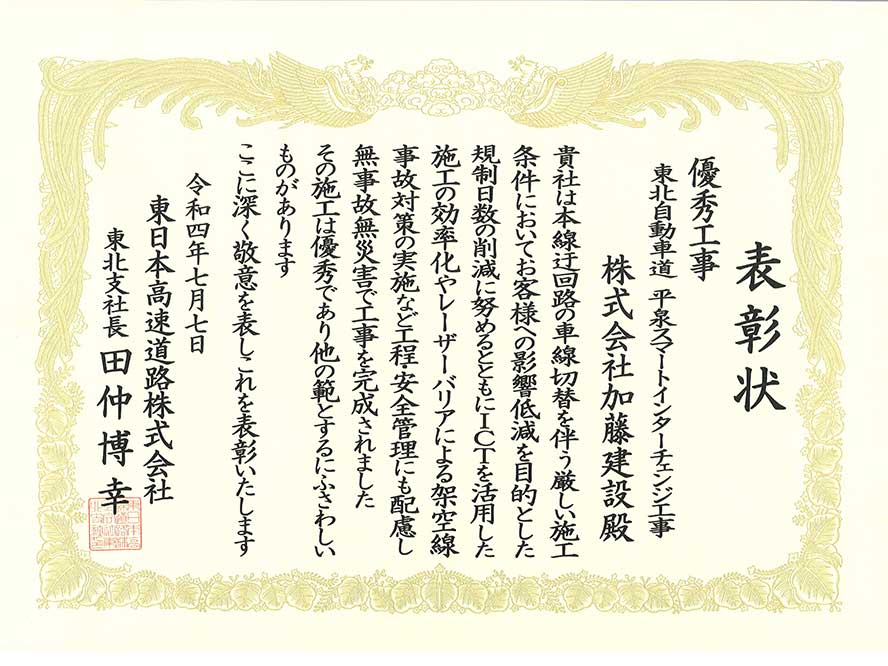 表彰状
優秀工事
東北自動車道 平泉スマートインターチェンジ工事
株式会社加藤建設殿
貴社は本線迂回路の車線切替を伴う厳しい施工
条件においてお客様への影響低減を目的とした
規制日数の削減に努めるとともにICTを活用した
施工の効率化やレーザーバリアによる架空線
事故対策の実施など工程・安全管理にも配慮し
無事故無災害で工事を完成されました
その施工は優秀であり他の範とするにふさわしい
ものがあります
ここに深く敬意を表しこれを表彰いたします
令和四年七月七日
東日本高速道路株式会社
東北支社長 田仲博幸